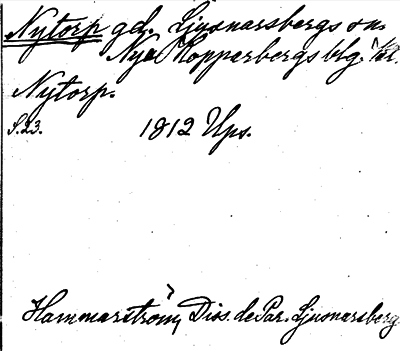 Nytorp gd. Ljusnarsbergs sn.
Nya Kopparbergs blg.
Nytorp.
S. 23. 1812 Ups.
Hammarström, Diss. de Par. Ljusnarsberg